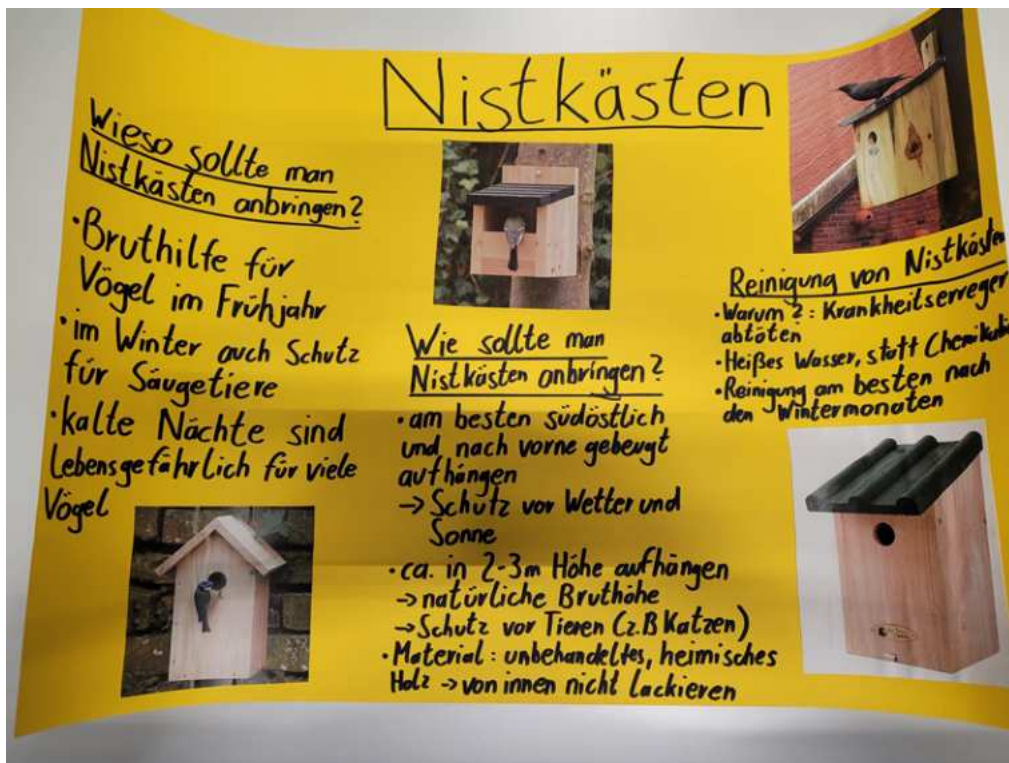 Nistkästen
Wieso sollte man
Nistkästen anbringen?
·Bruthilfe für
Vögel im Frühjahr
·im Winter auch Schutz
für Säugetiere
·kalte Nächte sind
Lebensgefährlich für viele
Vögel
Wie sollte man
Nistkästen anbringen?
·am besten südöstlich
und nach vorne gebeugt
aufhängen
→ Schutz vor Wetter und
Sonne
·ca. in 2-3m Höhe aufhängen
→ natürliche Bruthöhe
→ Schutz vor Tieren (z.B Katzen)
·Material: unbehandeltes, heimisches
Holz → von innen nicht lackieren
Reinigung von Nistkästen
·Warum?: Krankheitserreger
abtöten
·Heißes Wasser, statt
·Reinigung am besten nach
den Wintermonaten